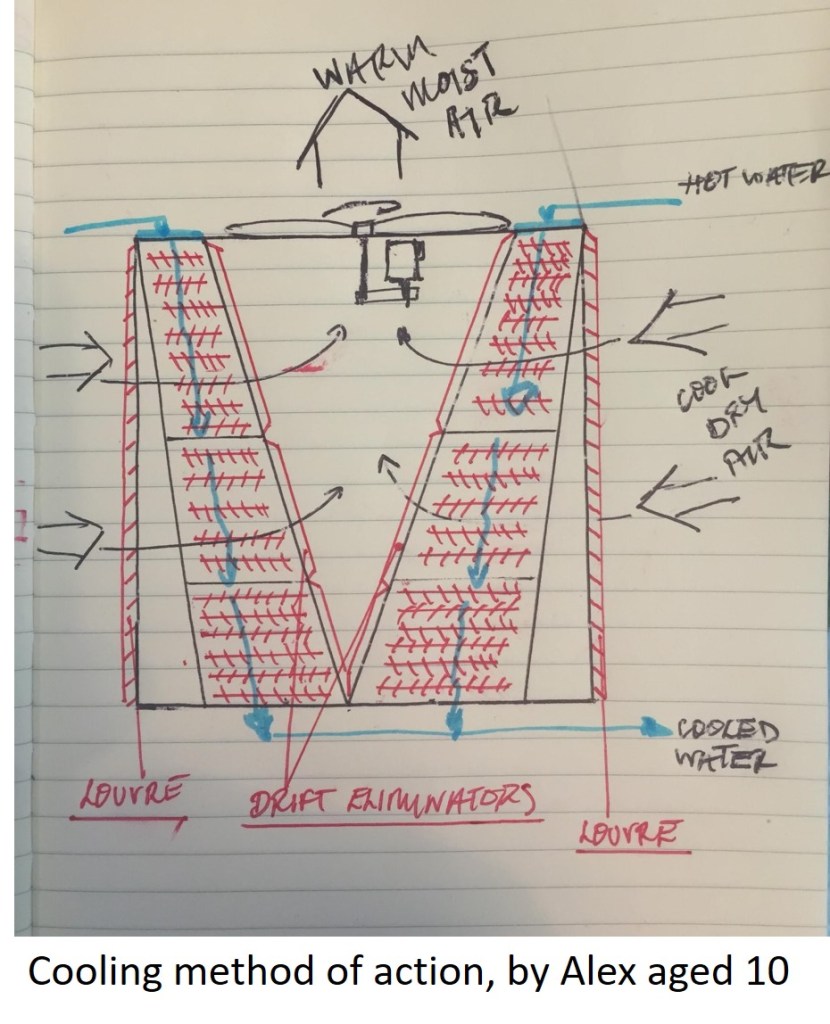 WARM
MOIST
AIR
HOT WATER
COOL
DRY
AIR
COOLED
WATER
LOUVRE
DRIFT ELIMINATORS
LOUVRE
Cooling method of action, by Alex aged 10